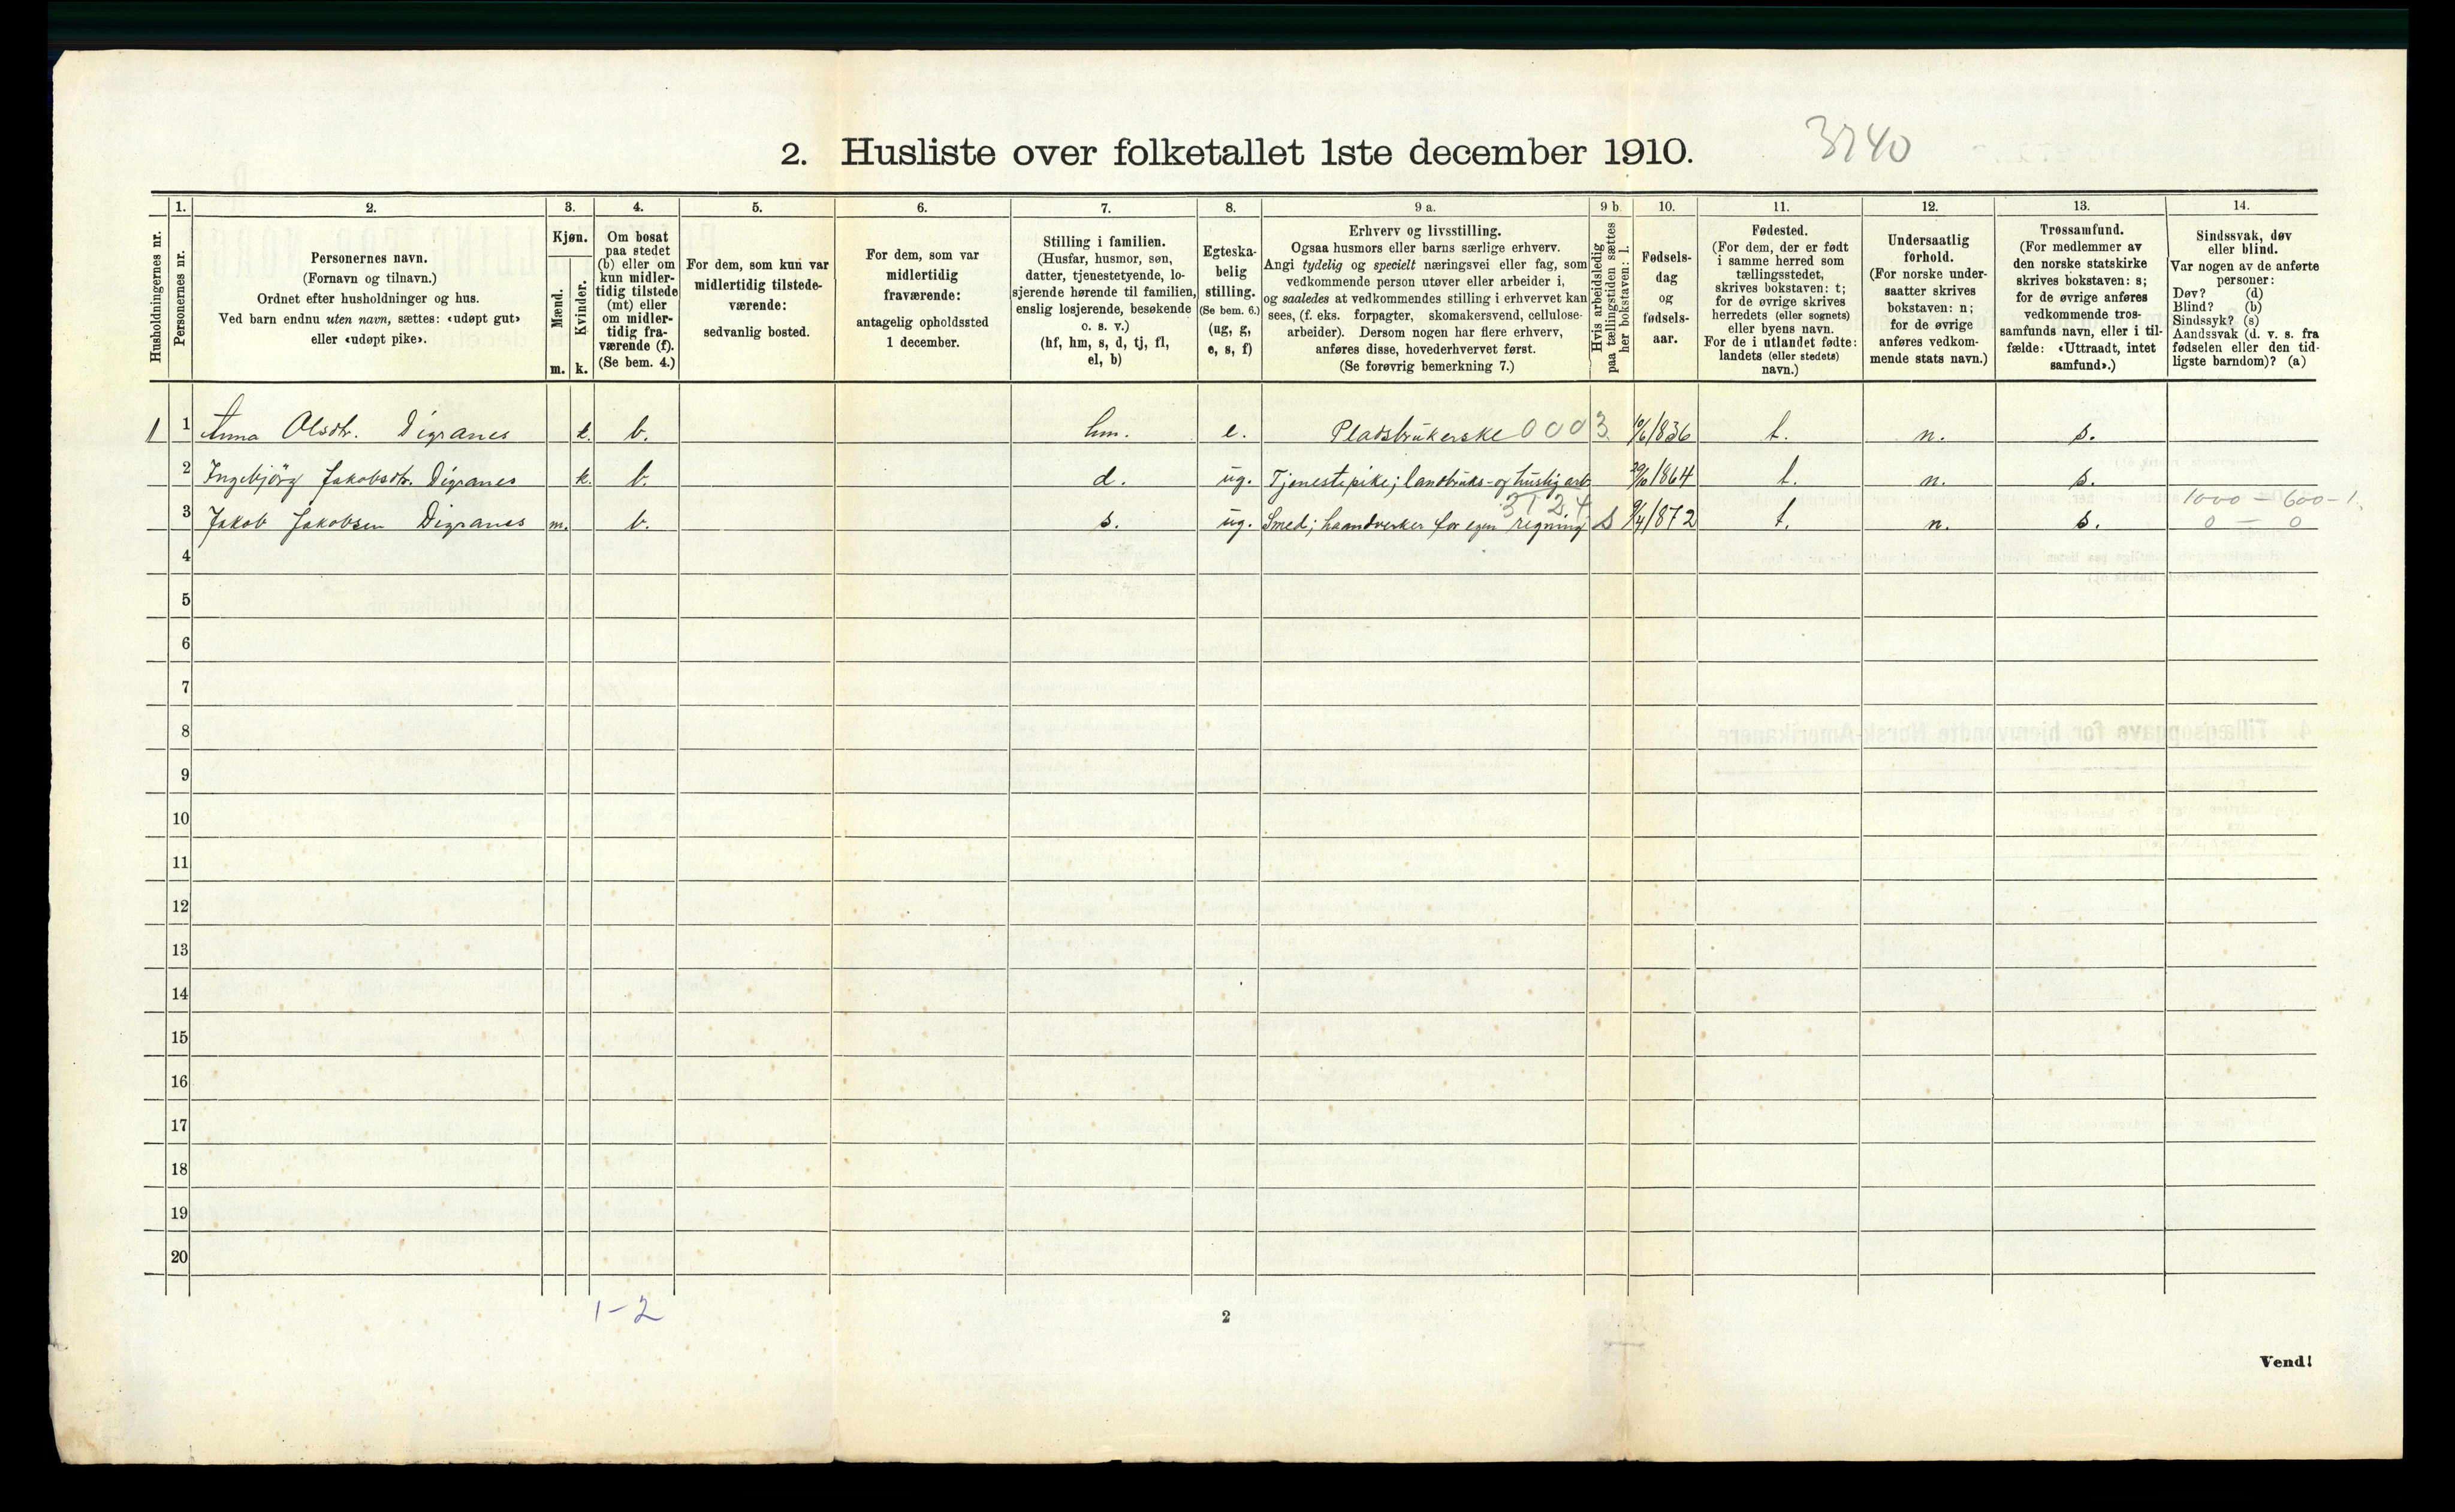 2. Husliste over folketallet 1ste december 1910.
3740
Husholdningernes nr.
1.
Personernes nr.
2.
Personernes navn.
(Fornavn og tilnavn.)
Ordnet efter husholdninger og hus.
Ved barn endnu uten navn, sættes: «udøpt gut»
eller «udøpt pike».
3.
Kjøn.
Mænd.
Kvinder.
m. k.
4.
Om bosat
paa stedet
(b) eller om
kun midler-
tidig tilstede
(mt) eller
om midler-
tidig fra-
værende (f).
(Se bem. 4.)
5.
For dem, som kun var
midlertidig tilstede-
værende:
sedvanlig bosted.
6.
For dem, som var
midlertidig
fraværende:
antagelig opholdssted
1 december.
7.
Stilling i familien.
(Husfar, husmor, søn,
datter, tjenestetyende, lo-
sjerende hørende til familien,
enslig losjerende, besøkende
o. s. v.)
(hf, hm, s, d, tj, fl,
el, b)
8.
Egteska-
belig
stilling.
(Se bem. 6.)
(ug, g,
e, s, f)
9 a.
Erhverv og livsstilling.
Ogsaa husmors eller barns særlige erhverv.
Angi tydelig og specielt næringsvei eller fag, som
vedkommende person utøver eller arbeider i,
og saaledes at vedkommendes stilling i erhvervet kan
sees, (f. eks. forpagter, skomakersvend, cellulose-
arbeider). Dersom nogen har flere erhverv,
anføres disse, hovederhvervet først.
(Se forøvrig bemerkning 7.)
9 b.
Hvis arbeidsledig
paa tællingstiden sættes
her bokstaven: l.
10.
Fødsels-
dag
og
fødsels-
aar.
11.
Fødested.
(For dem, der er født
i samme herred som
tællingsstedet,
skrives bokstaven: t;
for de øvrige skrives
herredets (eller sognets)
eller byens navn.
For de i utlandet fødte:
landets (eller stedets)
navn.)
12.
Undersaatlig
forhold.
(For norske under-
saatter skrives
bokstaven: n;
for de øvrige
anføres vedkom-
mende stats navn.)
13.
Trossamfund.
(For medlemmer av
den norske statskirke
skrives bokstaven: s;
for de øvrige anføres
vedkommende tros-
samfunds navn, eller i til-
fælde: «Uttraadt, intet
samfund».)
14.
Sindssvak, døv
eller blind.
Var nogen av de anførte
personer:
Døv? (d)
Blind? (b)
Sindssyk? (s)
Aandssvak (d. v. s. fra
fødselen eller den tid-
ligste barndom)? (a)
1 1 Anna Olsdtr. Digranes k. b. hm. e. Pladsbrukerske 000 3. 10/6/836 t. n. s.
2 Ingebjörg Jakobsdtr. Digranes k. b. d. ug. Tjenestepike; landbruks- og huslig arb 29/10/864 t. n. s.
3124 1000 — 600-1.
3 Jakob Jakobsen Digranes m. b. s. ug. Smed; haandverker for egen regning S 9/4/872 t. n. s. 0 — 0
4
5
6
7
8
9
10
11
12
13
14
15
16
17
18
19
20
1-2
2
Vend!